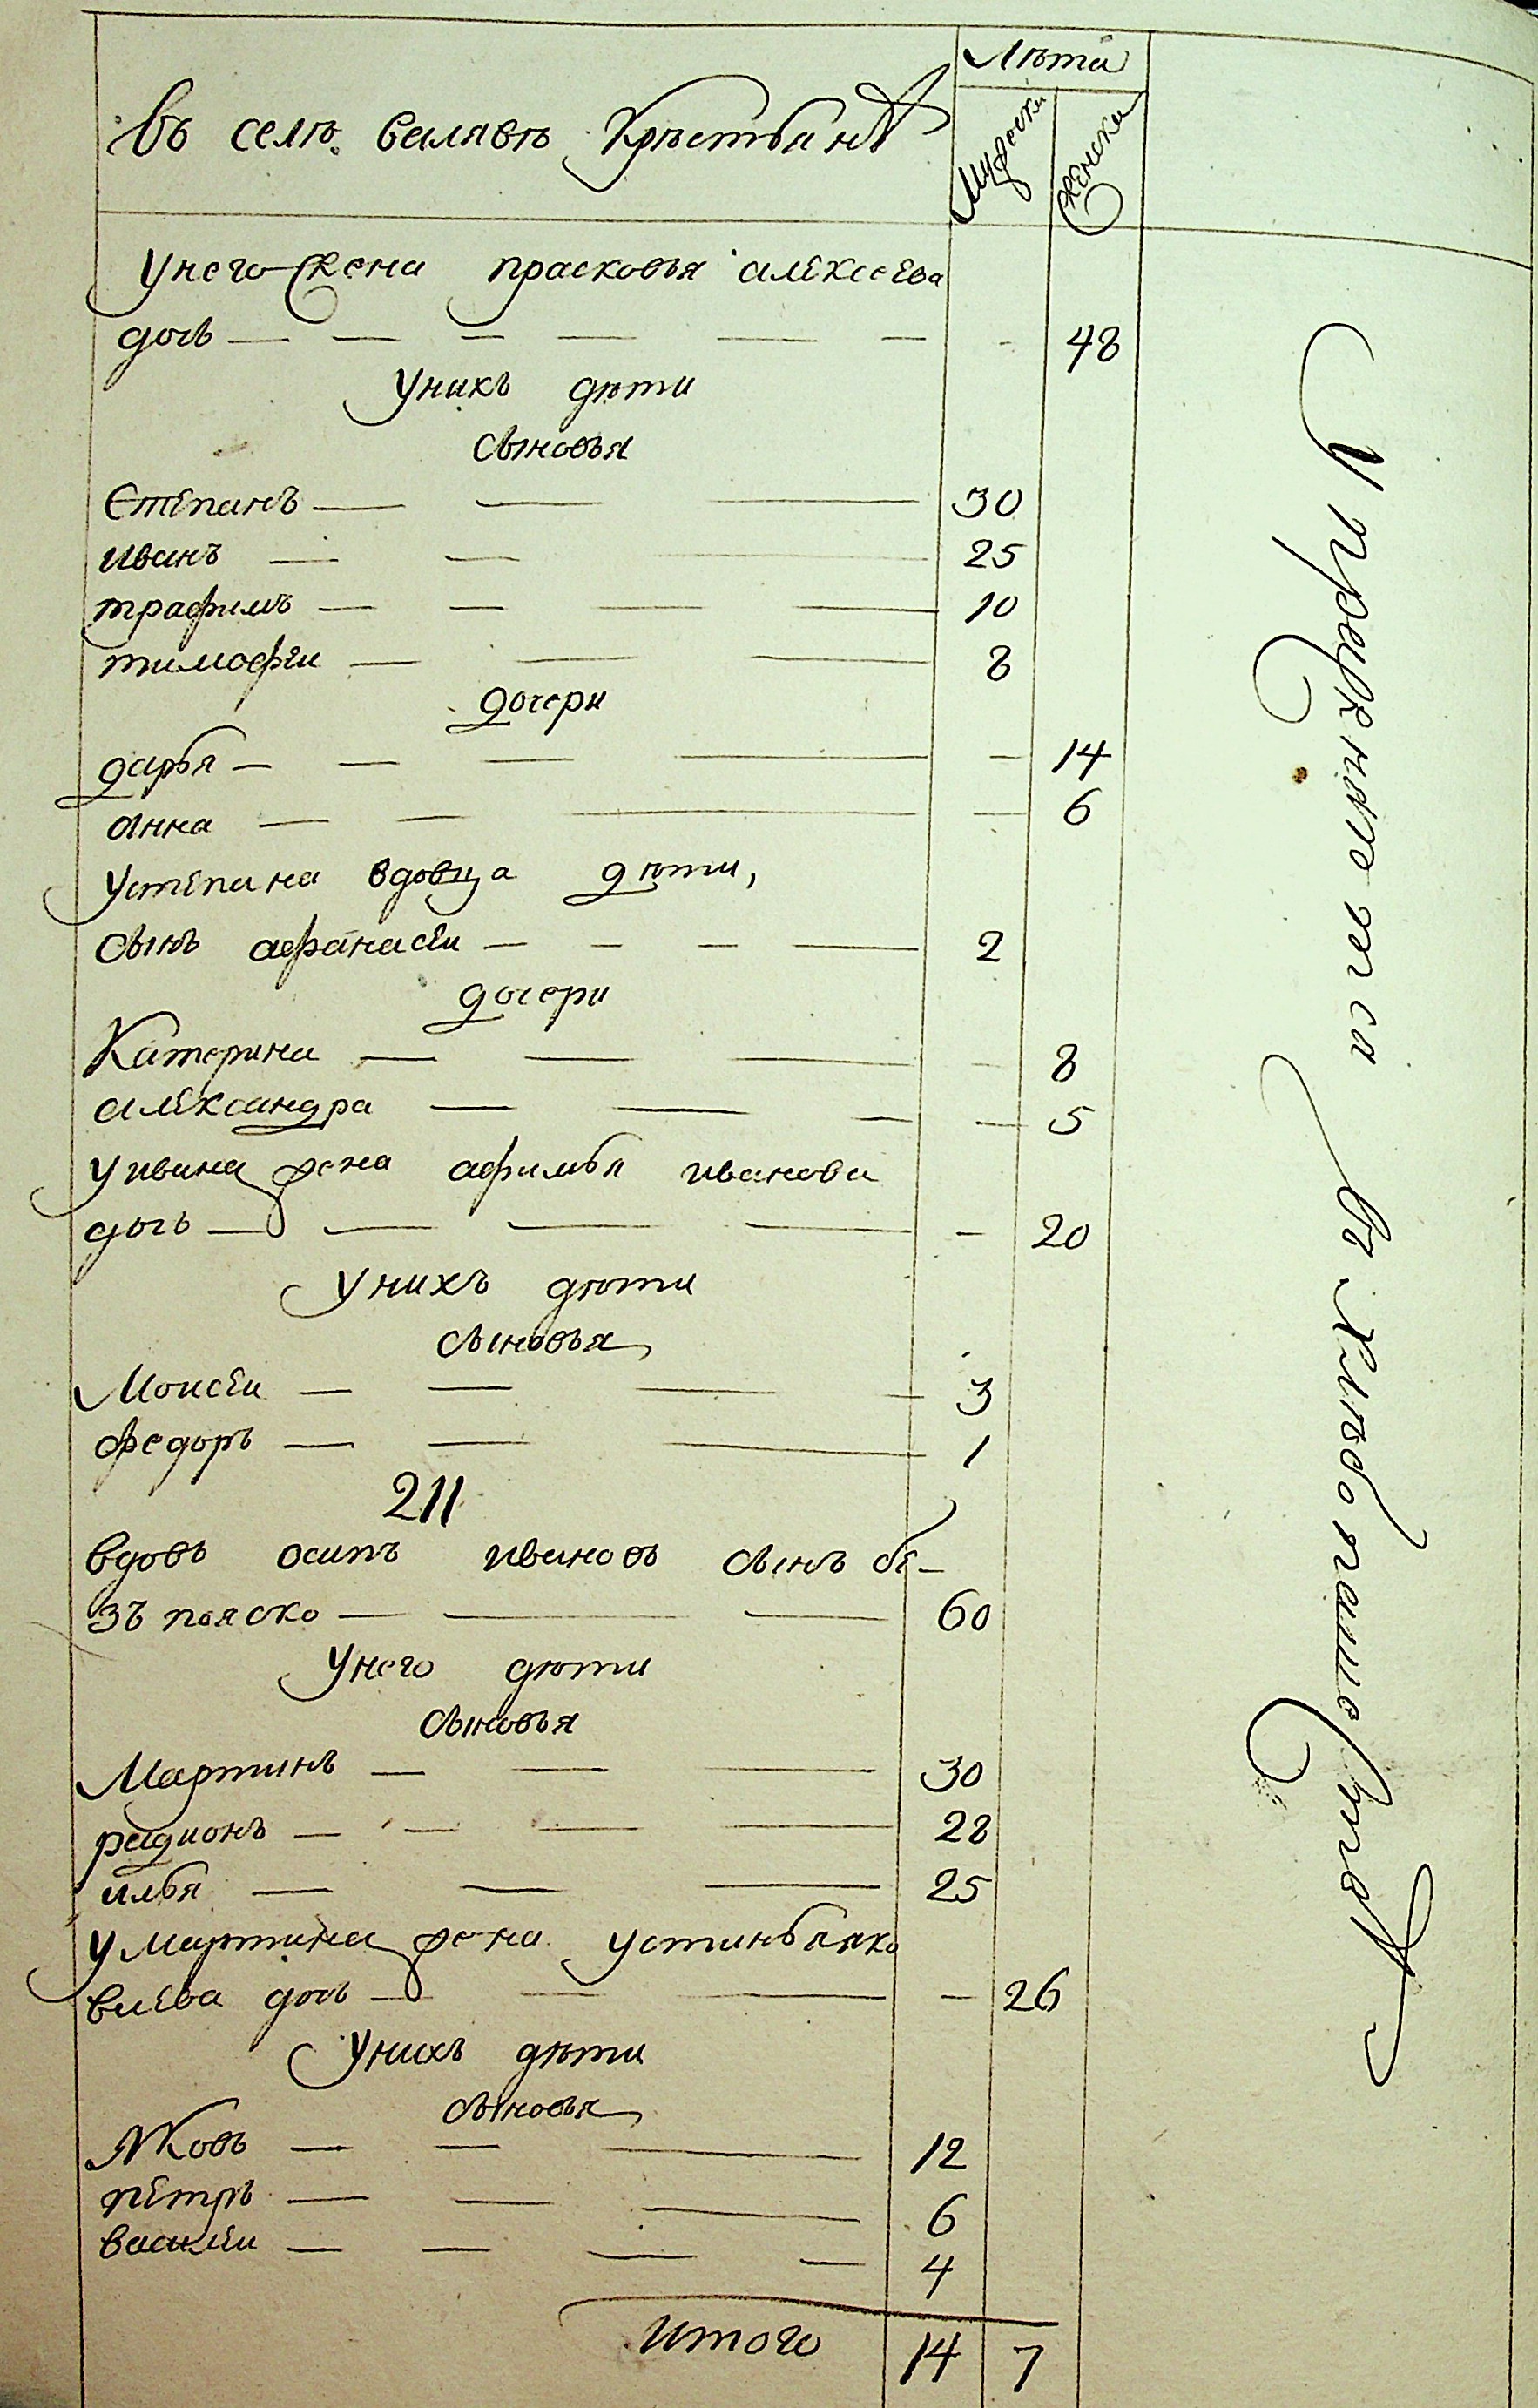 Лѣта
въ селѣ Белявѣ Крѣстьянъ
Мужска
Женска
Унего жена прасковья алексеева
дочь — — — — — — - 48
Унихъ дѣти
сыновья
Степанъ — — — 30
иванъ — — — 25
трафимъ — — — — 10
тимофеи — — — 8
дочери
дарья — — — — — 14
анна — — — — 6
Устепана вдовца дѣти,
сынъ афанасеи — — — — 2
дочери
Катерина — — — — 8
александра — — — — 5
Уивана жена афимья иванова
дочь — — — — — 20
Унихъ дѣти
сыновья
Моисеи — — — — 3
федоръ — — — 1
211
вдовъ осипъ ивановъ сынъ бе-
зъ пояско — — — 60
Унего дѣти
сыновья
Мартинъ — — — 30
радионъ — — — — 28
илья — — — 25
Умартина жена устинья яко
влева дочь — — — — 26
Унихъ дѣти
сыновья
Яковъ — — — 12
петръ — — — 6
василеи — — — — 4
итого 14 7
Упражняется въ Хлебопашествѣ